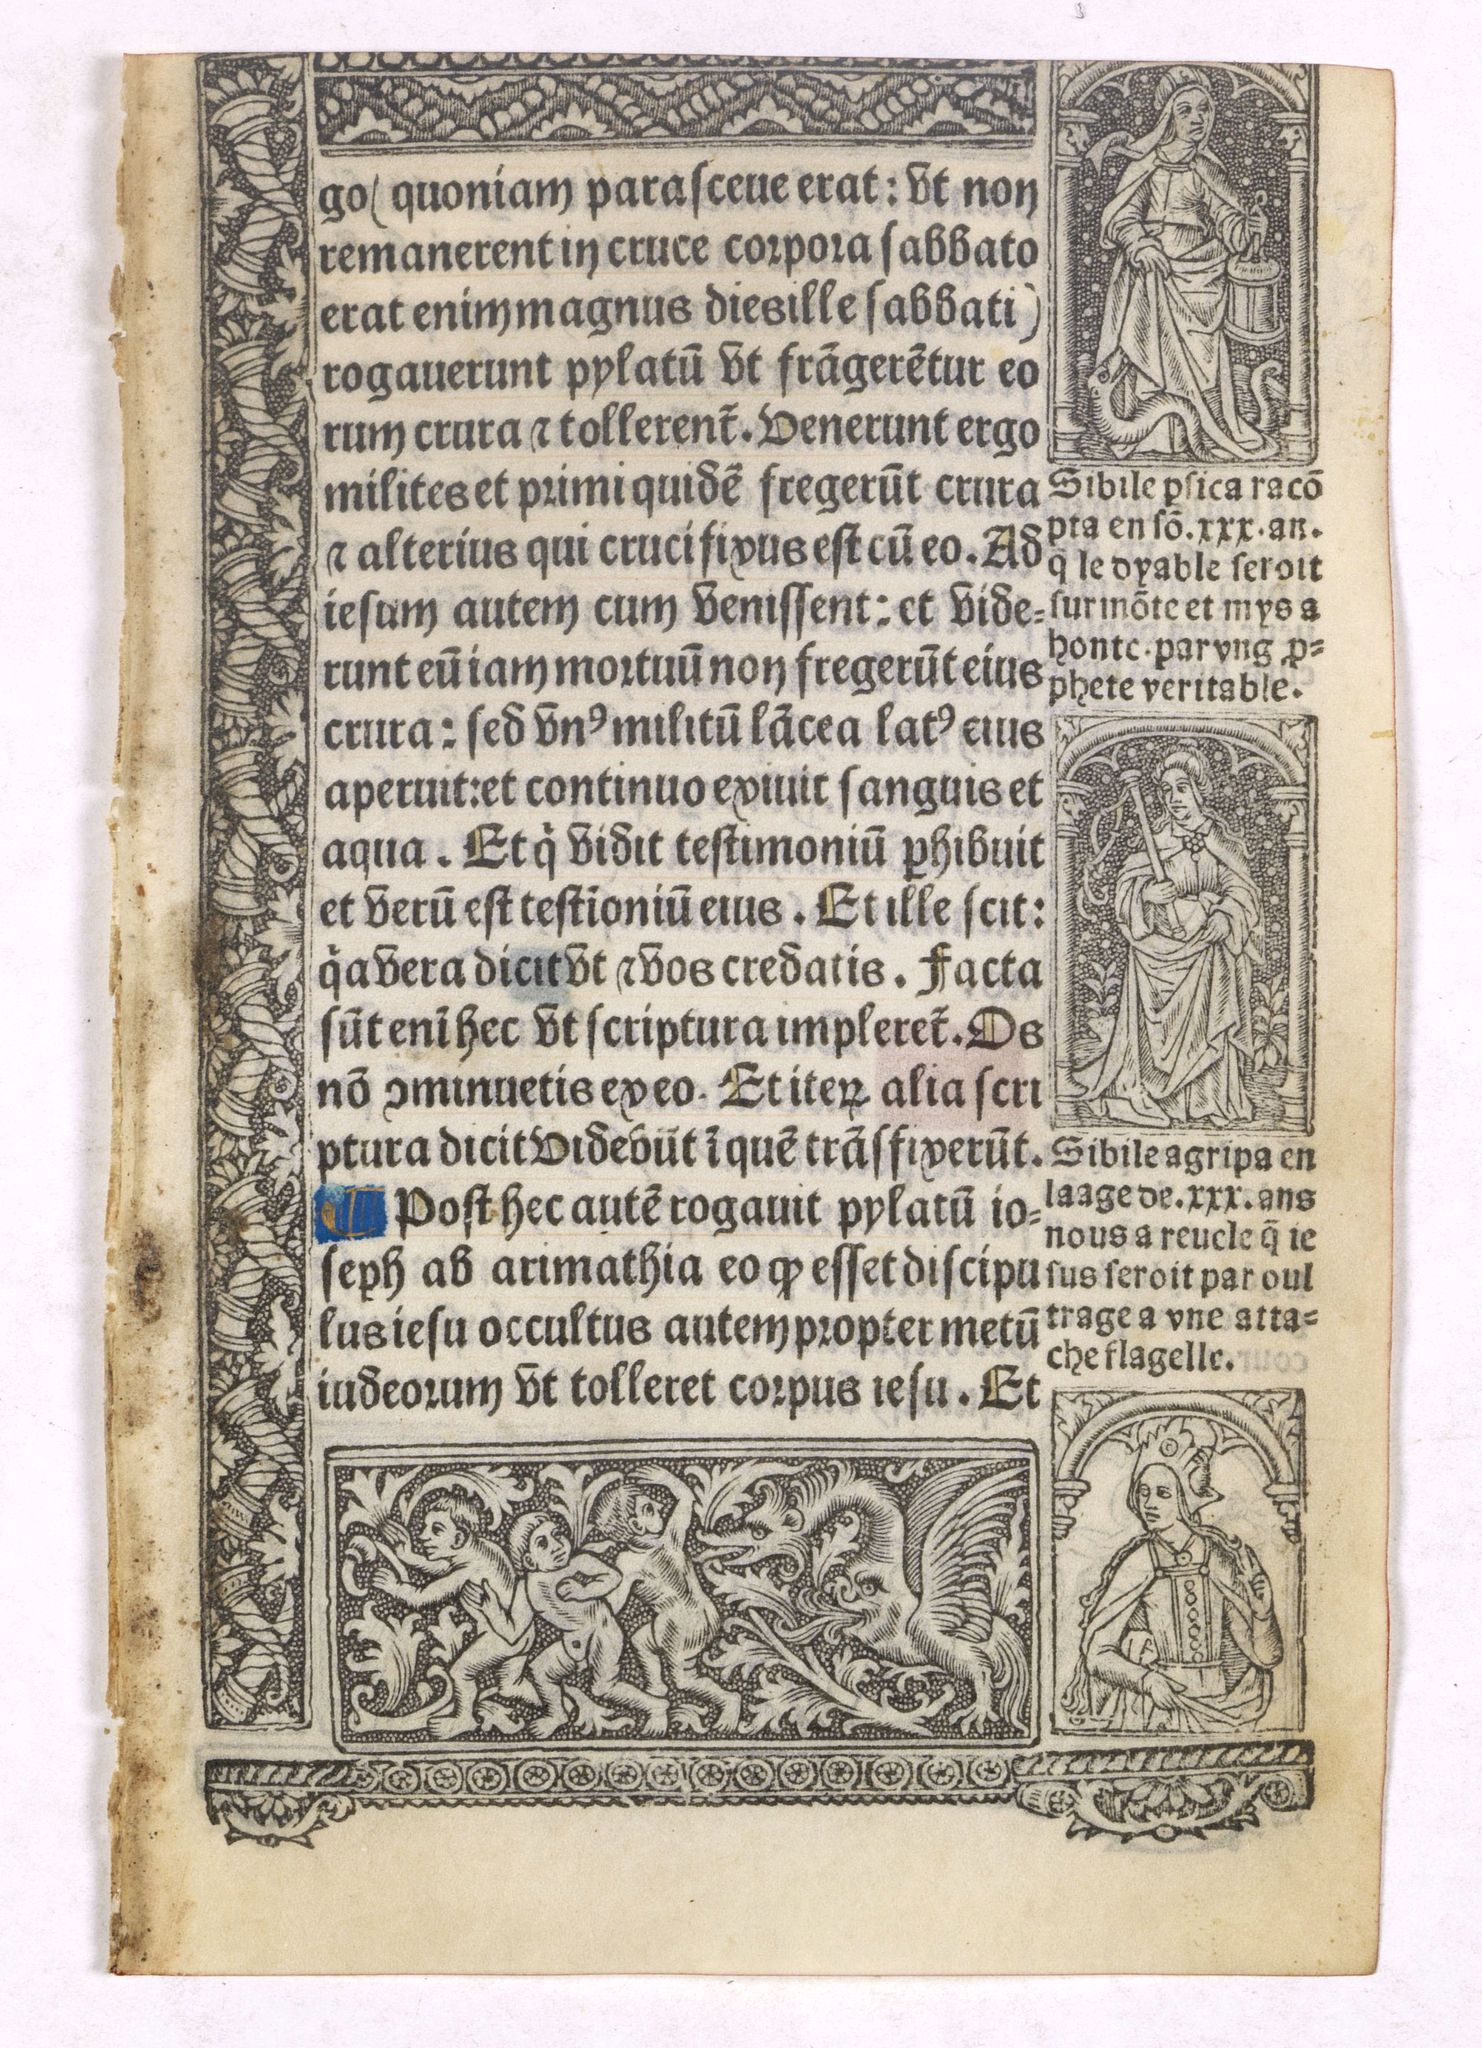 go( quoniam parasceue erat: vt non
remanerent in cruce corpora sabbato
erat enim magnus dies ille sabbati)
rogauerunt pylatū vt frāgerētur eo
rum crura ⁊ tollerent̄. Venerunt ergo
milites et primi quidē fregerūt crura
⁊ alterius qui crucifixus est cū eo. Ad
iesum autem cum venissent: et vide=
runt eū iam mortuū non fregerūt eius
crura: sed vnꝰ militū lācea latꝰ eius
aperuit: et continuo exiuit sanguis et
aqua. Et q̇ vidit testimoniū ꝑhibuit
et verū est testīoniū eius. Et ille scit:
q̇a vera dicit vt ⁊ vos credatis. Facta
sūt enī hec vt scriptura impleret̄. Os
nō ↄminuetis ex eo. Et iteꝝ alia scri
ptura dicit Videbūt ī quē trāsfixerūt.
¶ Post hec autē rogauit pylatū io=
seph ab arimathia eo ꝙ esset discipu
lus iesu occultus autem propter metū
iudeorum vt tolleret corpus iesu. Et
Sibile ꝑsica racō
pta en sō. xxx. an.
q le dyable seroit
surmōte et mys a
honte. par vng ꝓ=
phete veritable.
Sibile agripa en
laage de. xxx. ans
nous a reuele q̄ ie
sus seroit par oul
trage a vne atta=
che flagelle.